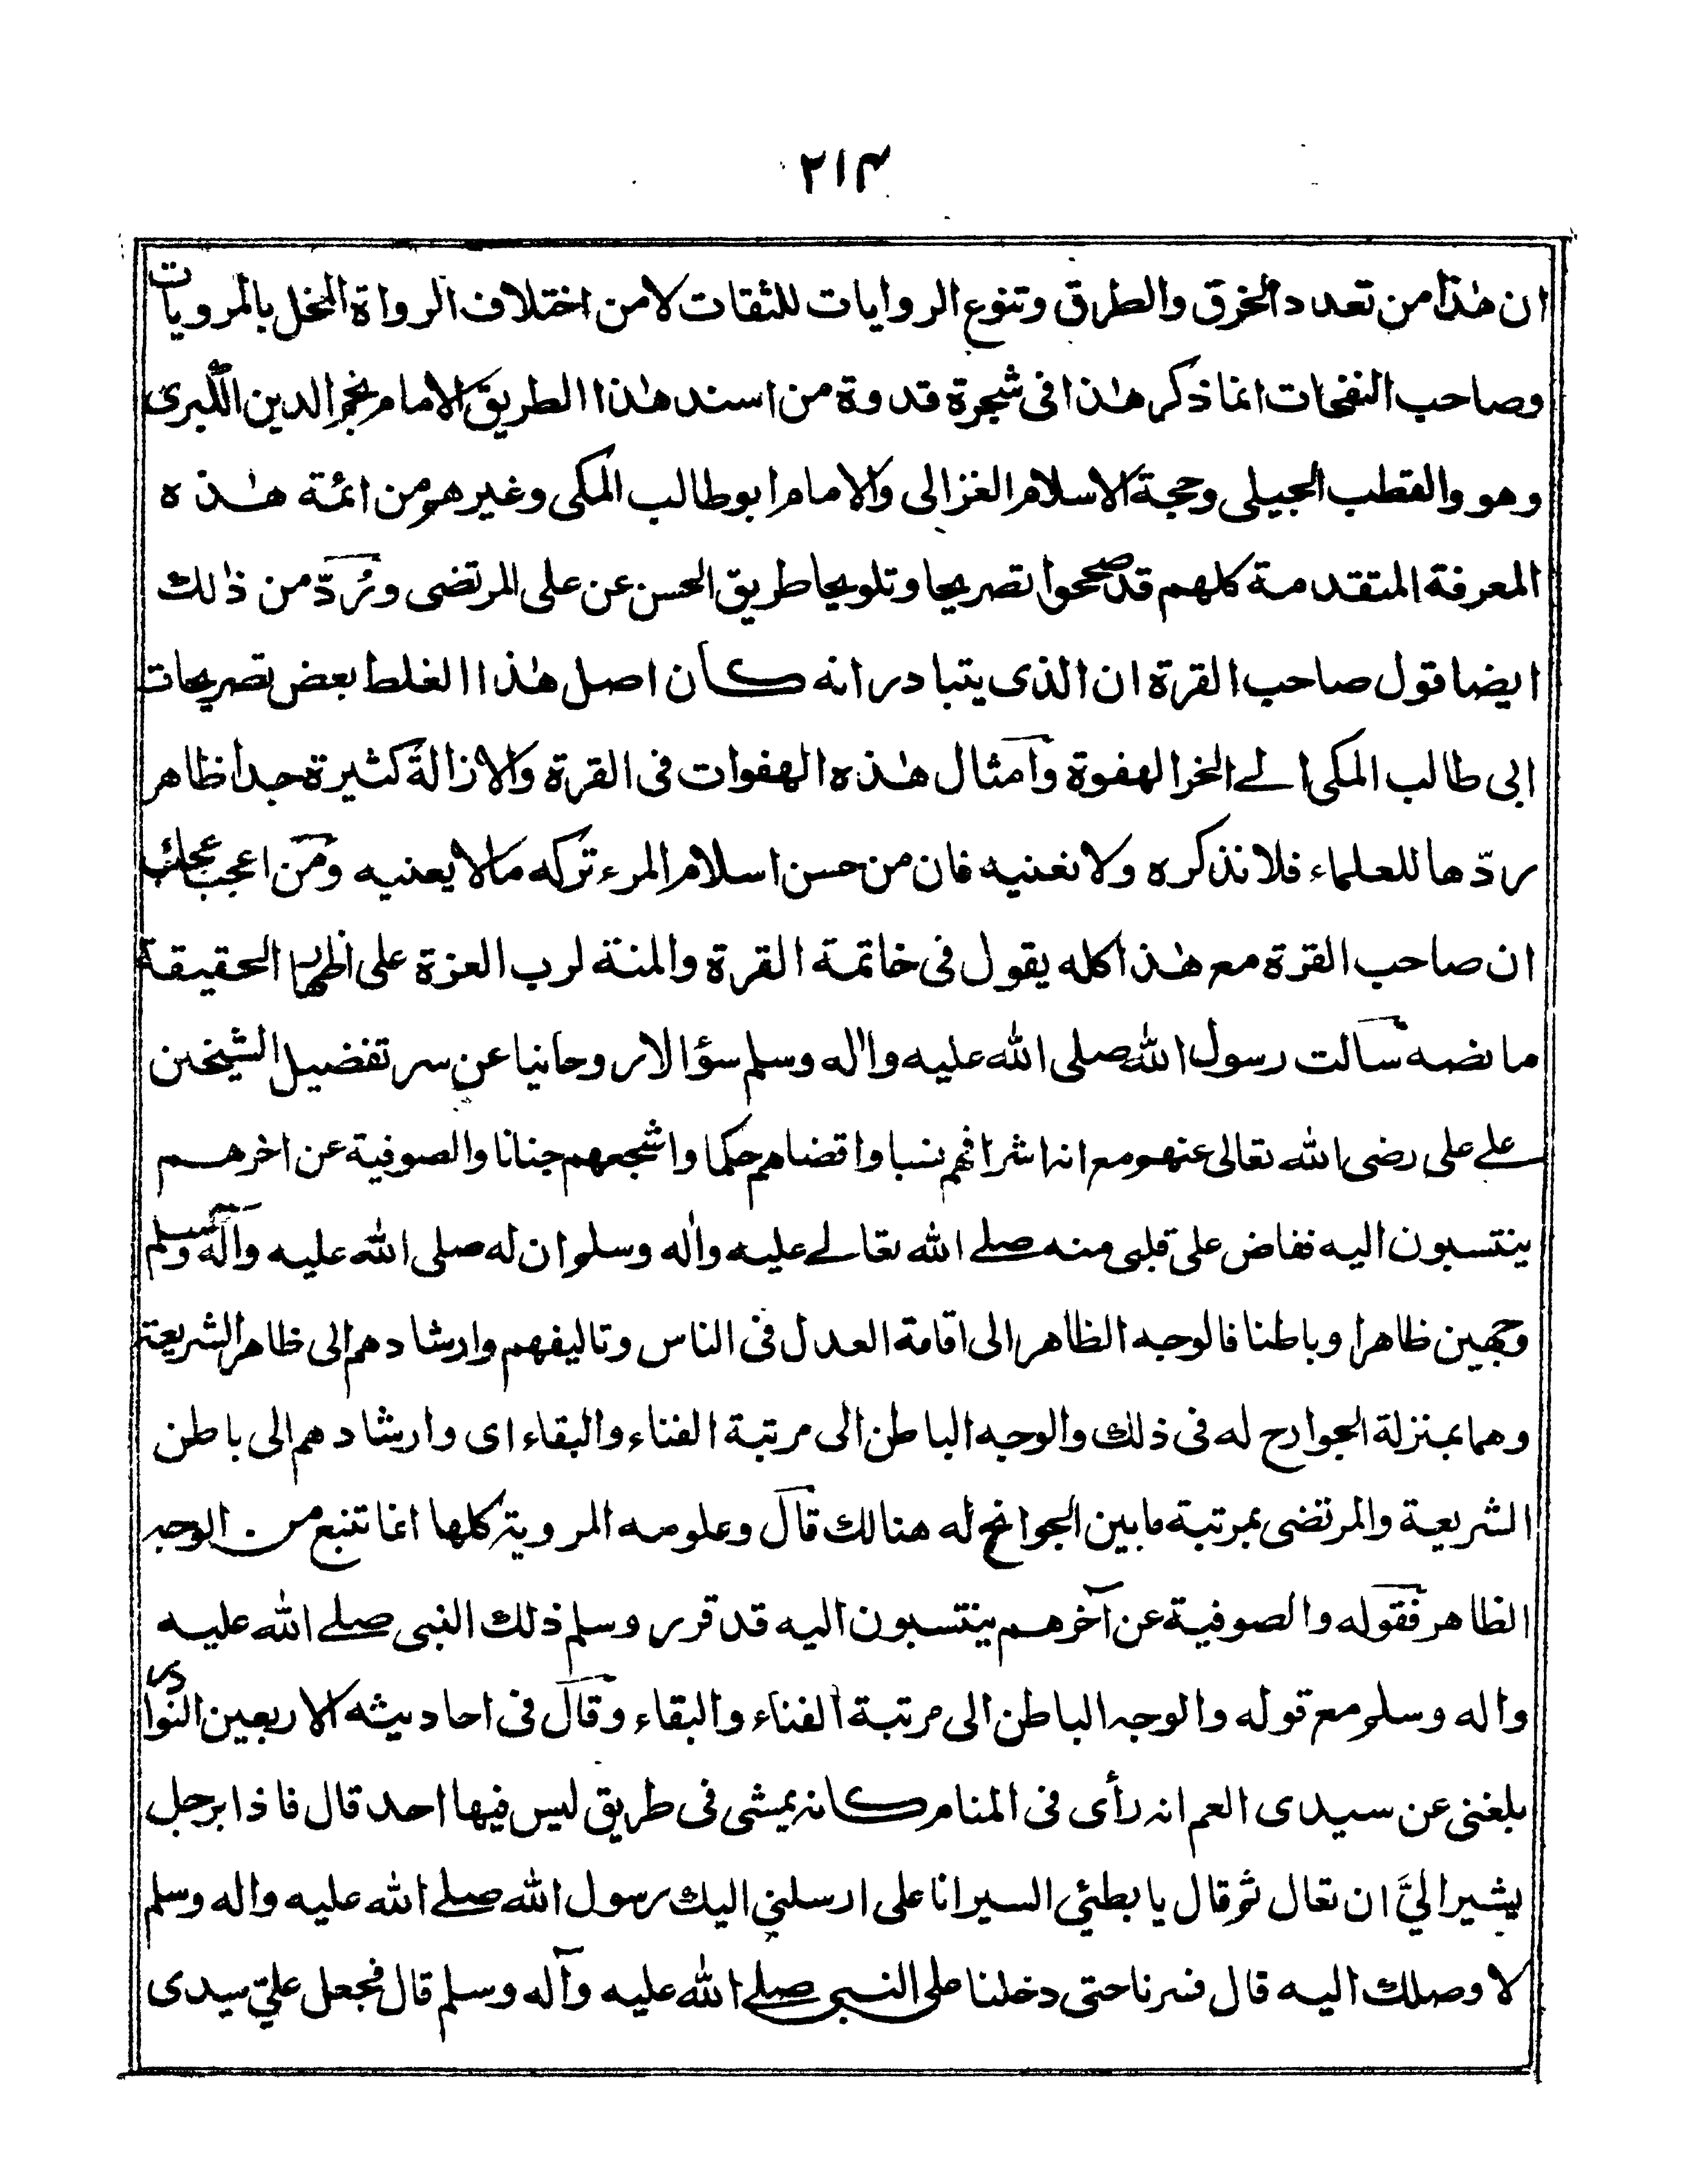 ۲۱۴
ان هٰذا من تعدد الخرق والطرق وتنوع الروايات للثقات لا من اختلاف الرواة المخل بالمرويات
وصاحب النفحات انما ذكر هٰذا فى شجرة قدوة من اسند هٰذا الطريق الامام نجم الدين الكبرى
وهو والقطب الجيلى وحجة الاسلام الغزالى والامام ابو طالب المكى وغيرهم من ائمة هٰذه
المعرفة المتقدمة كلهم قد صححوا تصريحا وتلويحا طريق الحسن عن على المرتضى ويُردّ من ذٰلك
ايضا قول صاحب القرة ان الذى يتبادر انه كان اصل هٰذا الغلط بعض تصريحات
ابى طالب المكى الے اخر الهفوة وامثال هٰذه الهفوات فى القرة والازالة كثيرة جدا ظاهر
ردّها للعلماء فلا نذكره ولا نعنيه فان من حسن اسلام المرء تركه مالا يعنيه ومن اعجب عجائب
ان صاحب القرة مع هٰذا كله يقول فى خاتمة القرة والمنة لرب العزة على اظهار الحقيقة
ما نصه سالت رسول الله صلى الله عليه واٰله وسلم سؤالا روحانيا عن سر تفضيل الشيخين
علے على رضى الله تعالى عنهم مع انه اشرافهم نسبا واقضاهم حكما واشجعهم جنانا والصوفية عن اخرهم
ينتسبون اليه ففاض على قلبى منه صلے الله تعالے عليه واٰله وسلم ان له صلى الله عليه واٰله وسلم
وجهين ظاهرا وباطنا فالوجه الظاهر الى اقامة العدل فى الناس وتاليفهم وارشادهم الى ظاهر الشريعة
وهما بمنزلة الجوارح له فى ذلك والوجه الباطن الى مرتبة الفناء والبقاء اى وارشادهم الى باطن
الشريعة والمرتضى بمرتبة ما بين الجوانح له هنالك قال وعلومه المروية كلها انما تنبع من الوجه
الظاهر فقوله والصوفية عن آخرهم ينتسبون اليه قد قرر وسلم ذلك النبى صلے الله عليه
واله وسلم مع قوله والوجه الباطن الى مرتبة الفناء والبقاء وقال فى احاديثه الاربعين النوادر
بلغنى عن سيدى العم انه رأى فى المنام كانه يمشى فى طريق ليس فيها احد قال فاذا برجل
يشير اليَّ ان تعال ثم قال يا بطئي السير انا على ارسلني اليك رسول الله صلے الله عليه واله وسلم
لاوصلك اليه قال فسرنا حتى دخلنا على النبى صلے الله عليه وآله وسلم قال فجعل عليّ سيدى